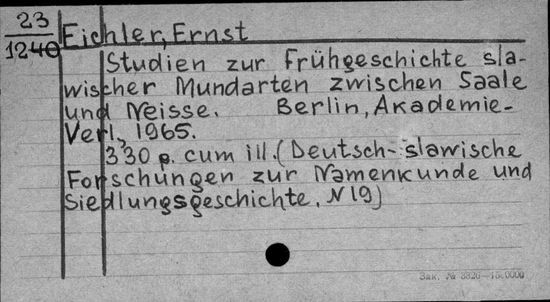 23
1240
Eichler, Ernst
Studien zur Frühgeschichte sla-
wischer Mundarten zwischen Saale
und Neisse. Berlin, Akademie-
Verl., 1965.
330 p. cum ill. (Deutsch-slawische
Forschungen zur Namenkunde und
Siedlungsgeschichte, N 19)
Зак. № 3826—15.0000